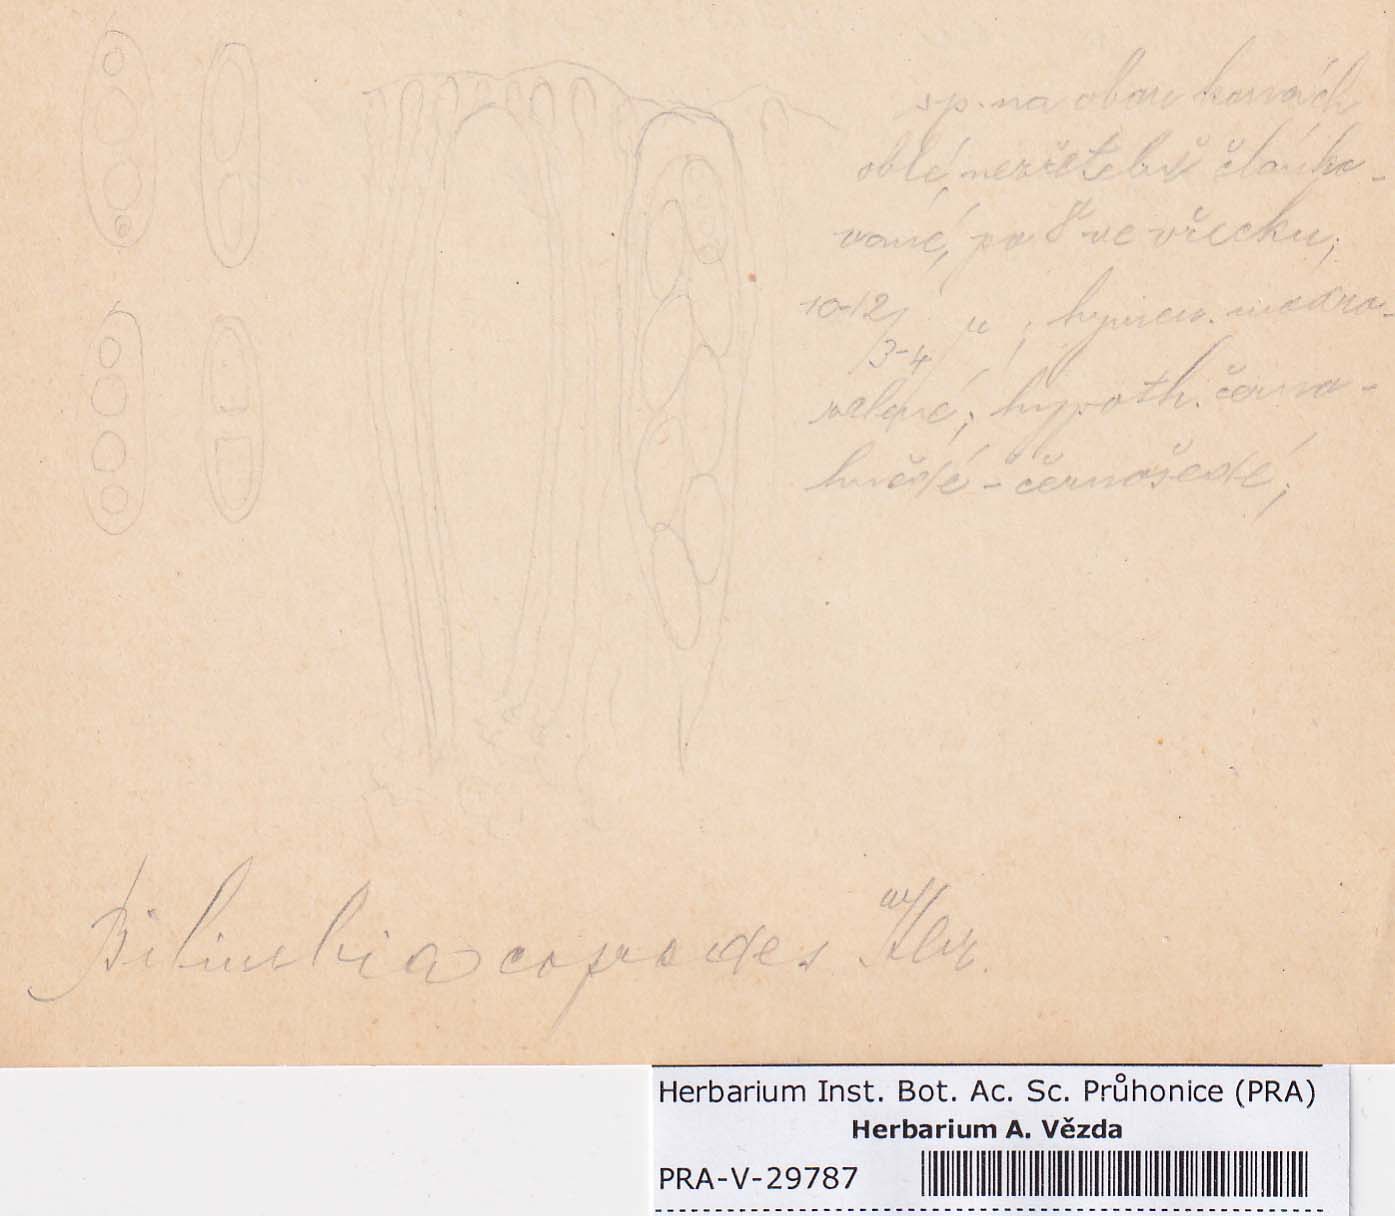 sp. na obou koncích
oblé, nezřetelně článko-
vané, po 8 ve vřecku;
10-12/3-4 µ; hymen. modro-
zelené; hypoth. černo-
hnědé - černošedé;
Bilimbia coprodes
Herbarium Inst. Bot. Ac. Sc. Průhonice (PRA)
Herbarium A. Vězda
PRA-V-29787